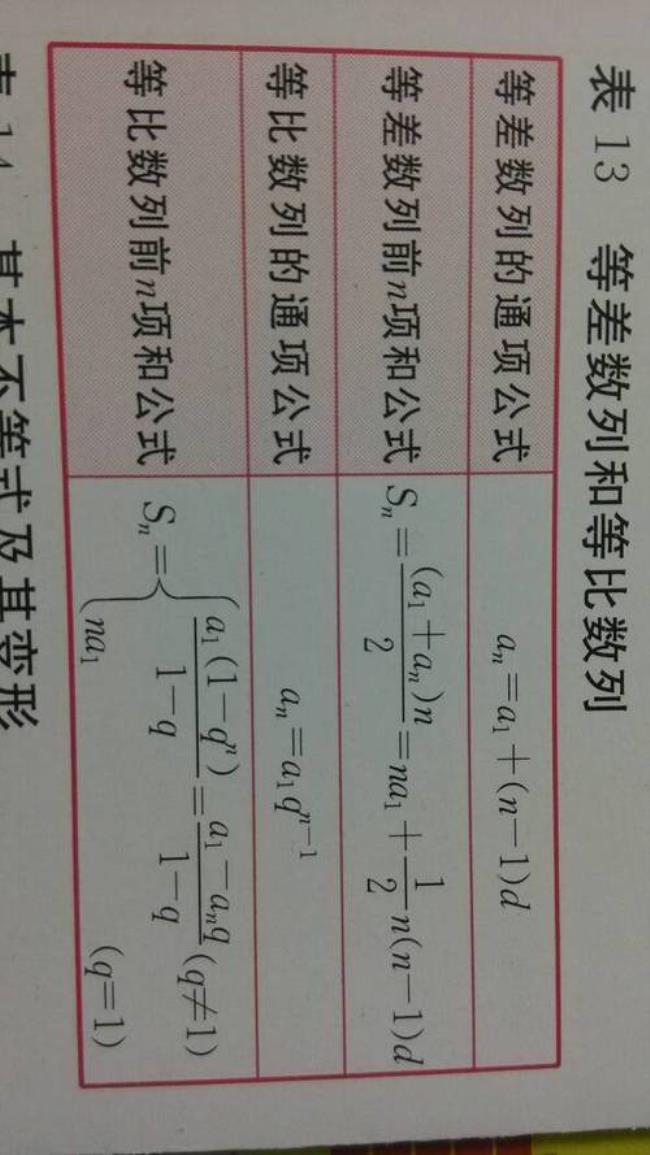 表 13 等差数列和等比数列
等差数列的通项公式 aₙ=a₁+(n-1)d
等差数列前n项和公式 Sₙ=(a₁+aₙ)n/2=na₁+1/2n(n-1)d
等比数列的通项公式 aₙ=a₁qⁿ⁻¹
等比数列前n项和公式 Sₙ={a₁(1-qⁿ)/1-q=a₁-aₙq/1-q (q≠1)
na₁ (q=1)
表 14 基本不等式及其变形